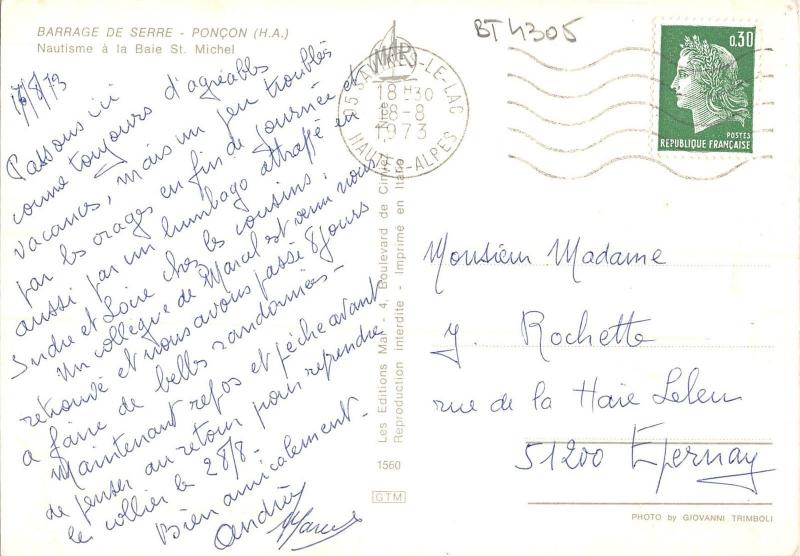 BARRAGE DE SERRE - PONÇON (H.A.)
Nautisme à la Baie St. Michel
17/8/73
Passons ici
comme toujours d'agréables
vacances, mais un peu troublés
par les orages en fin de journée et
aussi par un lumbago attrappé en
Indre et Loire chez les cousins.
Un collègue de Marcel est venu nous
retrouvé et nous avons passé 8 jours
a faire de belles randonnées -
Maintenant repos et pêche avant
de penser au retour pour reprendre
le collier le 28/8 -
Bien amicalement -
Andrée
Marcel
Les Editions Mar - 4, Boulevard de
Reproduction interdite - Imprimé en Italie
1560
GTM
MAR
BT 4305
05 LE-LAC
18 H30
18-8
1973
HAUTES-ALPES
0,30
POSTES
REPUBLIQUE FRANÇAISE
Monsieur Madame
J. Rochette
rue de la Haie Leleu
51200 Epernay
PHOTO by GIOVANNI TRIMBOLI